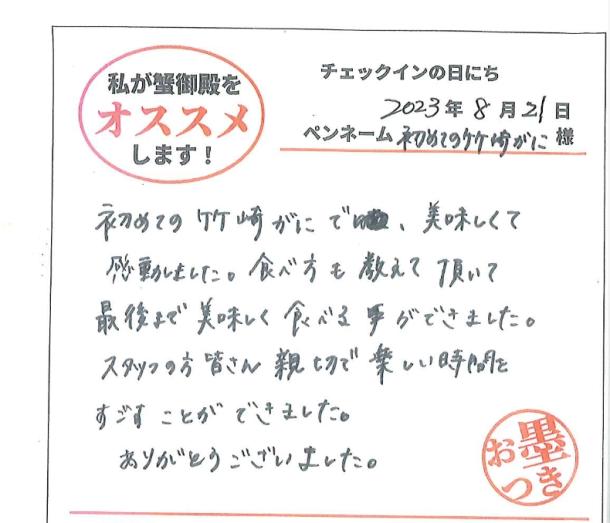 私が蟹御殿を
オススメ
します！
チェックインの日にち
2023年8月21日
ペンネーム 初めての竹崎がに 様
初めての竹崎がにで、美味しくて
感動しました。食べ方も教えて頂いて
最後まで美味しく食べる事ができました。
スタッフの方皆さん親切で楽しい時間を
すごすことができました。
ありがとうございました。
お墨
つき